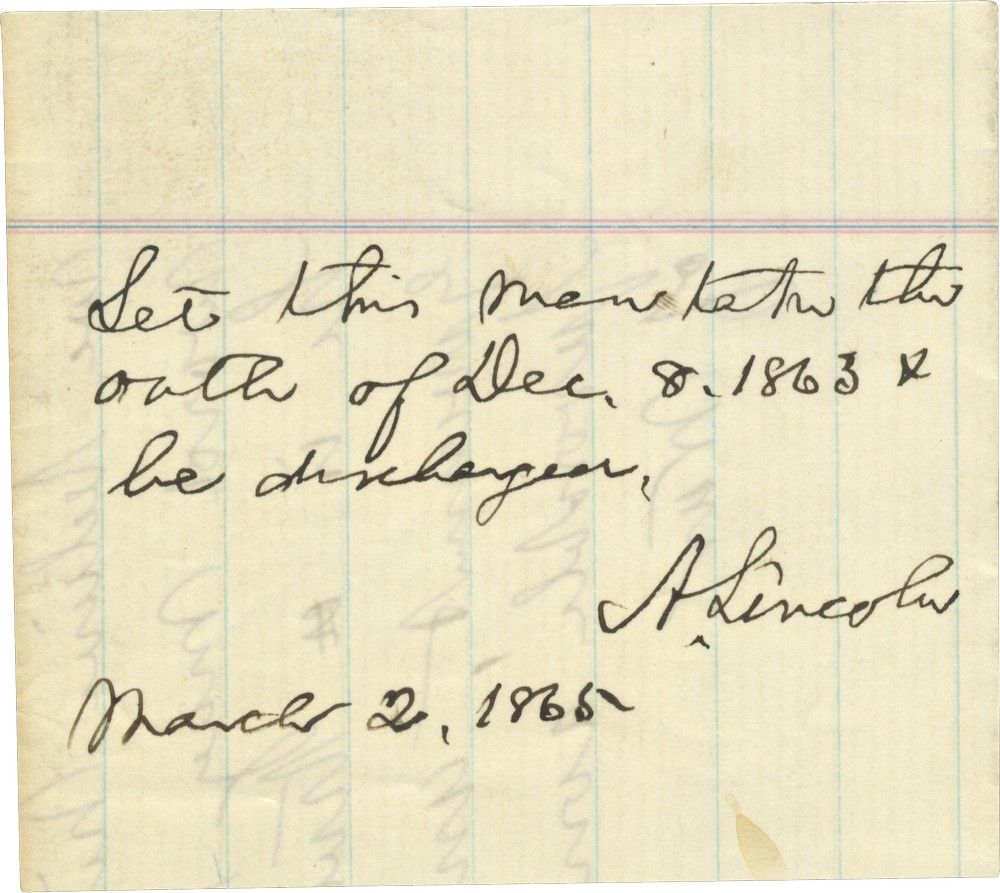 Let this man take the
oath of Dec. 8. 1863 &
be discharged.
A. Lincoln
March 2, 1865